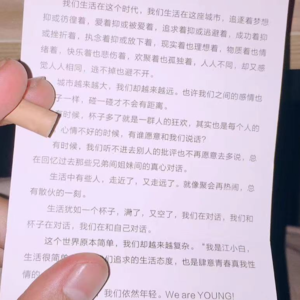 我们生活在这个时代，我们生活在这座城市，追逐着梦想
抑或彷徨着，爱着抑或被爱着，追求着抑或逃避着，成功着抑
或挫折着，执念着抑或放下着，现实着也理想着，物质着也情
绪着，快乐着也悲伤着，欢聚着也孤独着，人人不同，却又感
觉人人相同，逃不掉也避不开。
城市越来越大，我们却越来越远。也许我们之间的感情也
子一样，碰一碰才不会有距离。
时候，杯子多了就是一群人的狂欢，其实也是每个人的
心情不好的时候，有谁愿意和我们说话？
有时候，我们听不进去别人的批评也不再愿意去多说，总
在回忆过去那些兄弟闺蜜姊间的真心对话。
生活中有些人，走近了，又走远了，就像聚会再热闹，总
有散伙的一刻。
生活犹如一个杯子，满了，又空了，我们在对话，我们和
杯子在对话，我们在和自己对话。
这个世界原本简单，我们却越来越复杂。“我是江小白，
生活很简单 们追求的生活态度，也是肆意青春真我性
情的
，我们依然年轻。We are YOUNG!